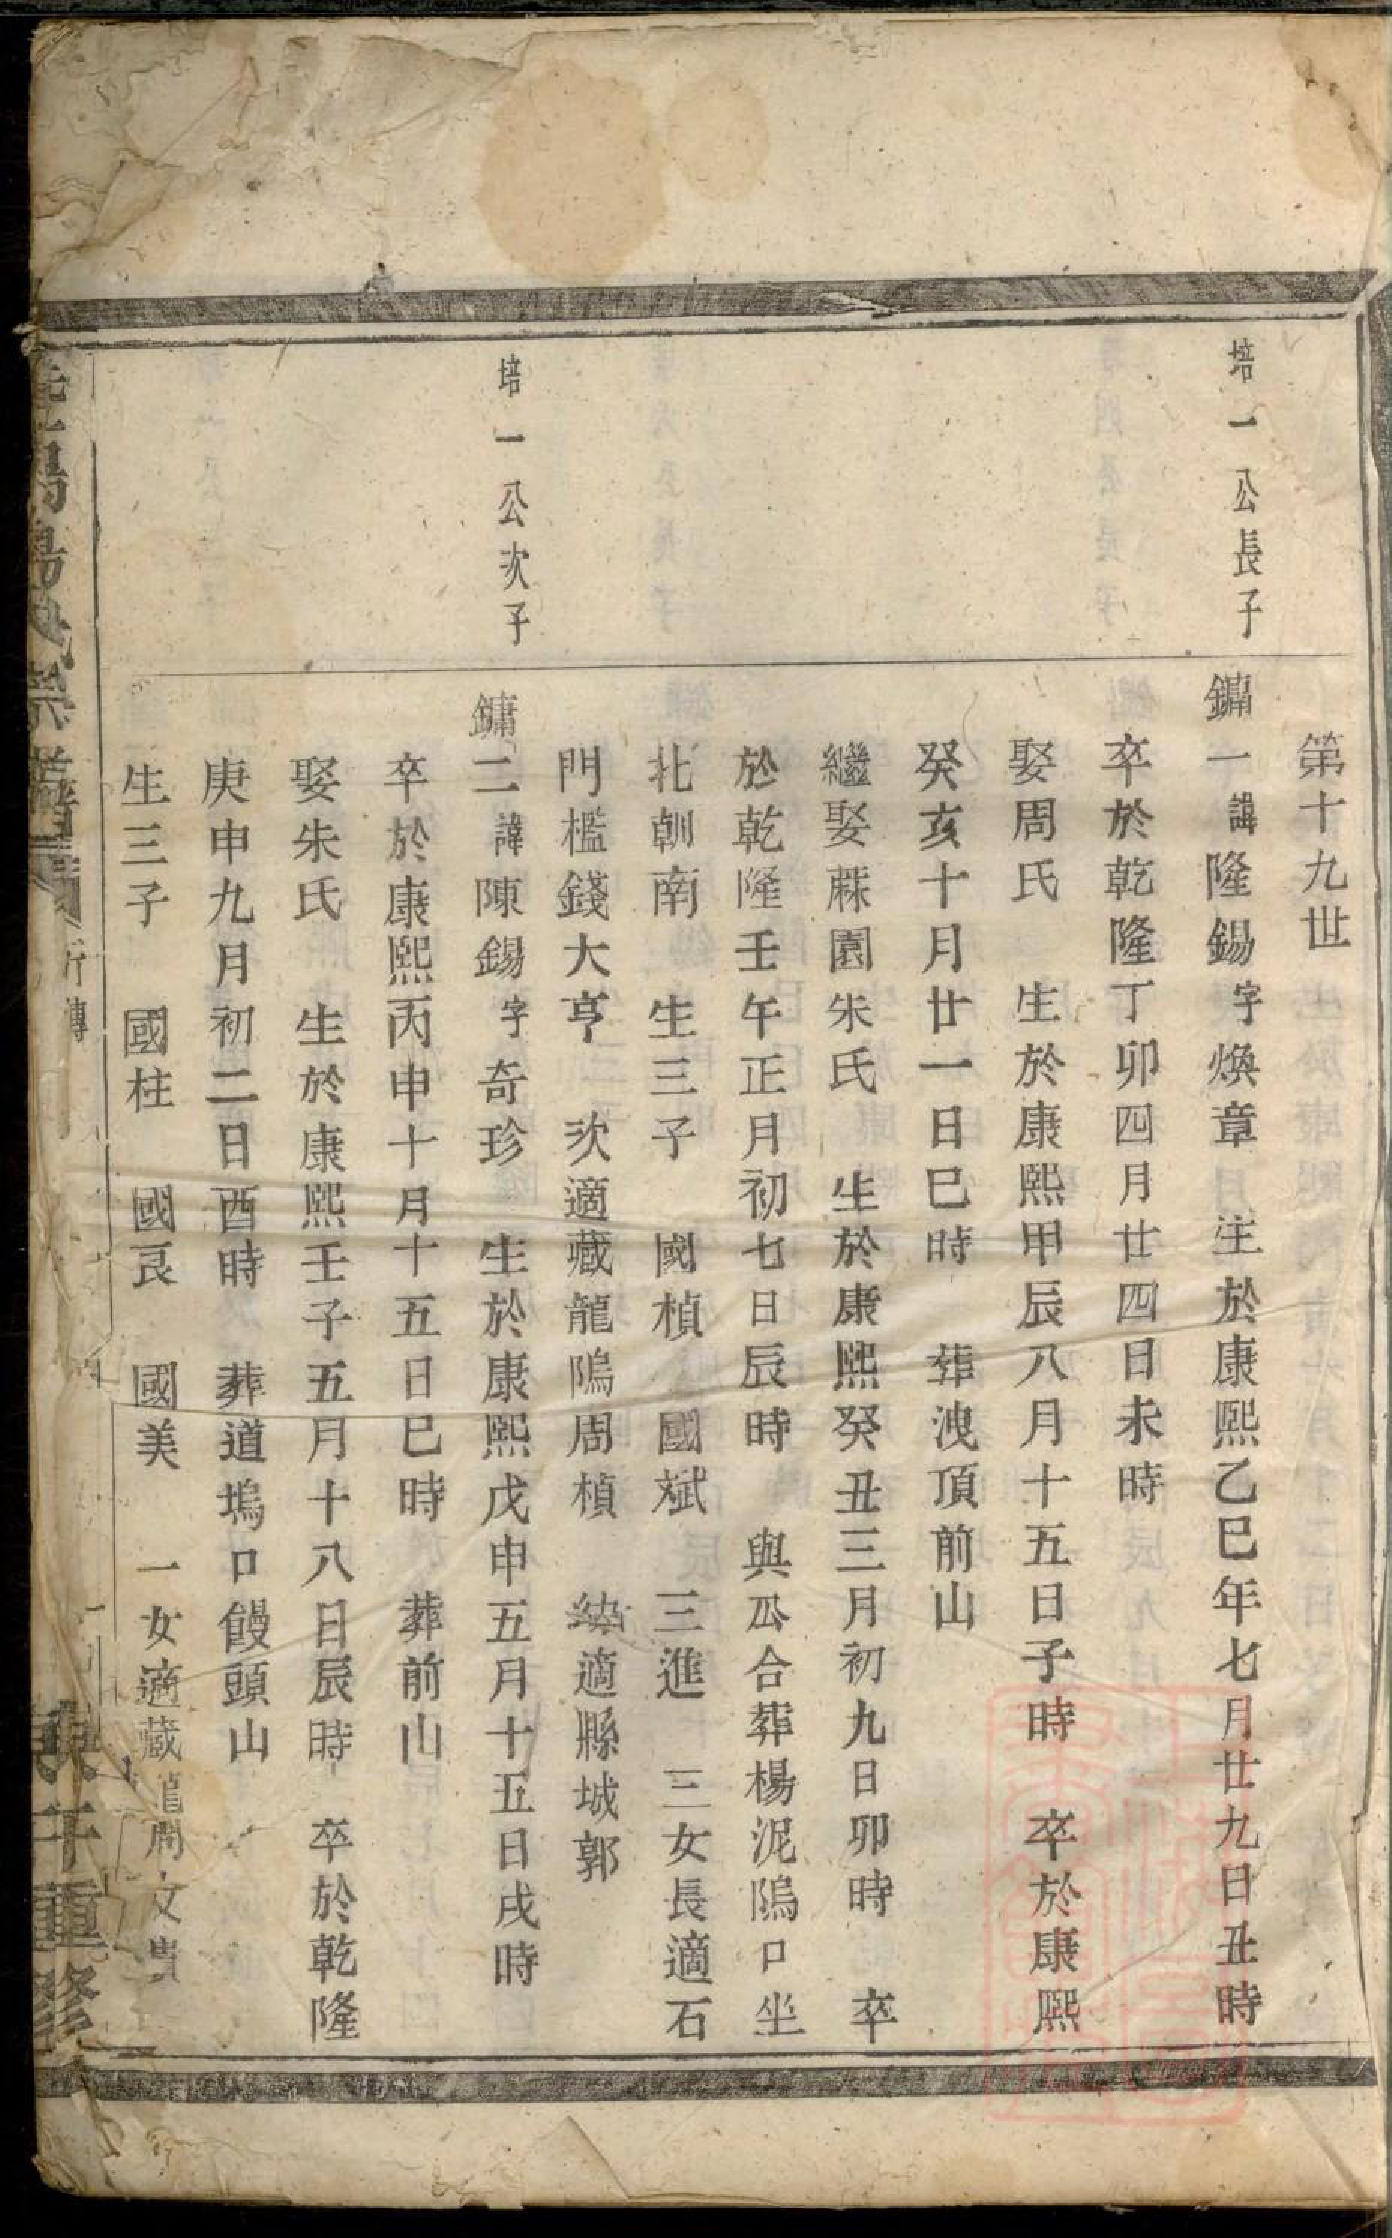 第十九世
培一公長子
鏞一諱隆錫字煥章　生於康熙乙巳年七月廿九日丑時
卒於乾隆丁卯四月廿四日未時
娶周氏　生於康熙甲辰八月十五日子時　卒於康熙
癸亥十月廿一日巳時　葬洩頂前山
繼娶蔴園朱氏　生於康熙癸丑三月初九日卯時　卒
於乾隆壬午正月初七日辰時　與公合葬楊泥隖口坐
北朝南　生三子　國楨　國斌　三進　三女長適石
門檻錢大亨　次適藏龍隖周楨　幼適縣城郭
培一公次子
鏞二諱陳錫字奇珍　生於康熙戊申五月十五日戌時
卒於康熙丙申十月十五日巳時　葬前山
娶朱氏　生於康熙壬子五月十八日辰時　卒於乾隆
庚申九月初二日酉時　葬道塢口饅頭山
生三子　國柱　國良　國美　一女適藏周文
氏宗譜　行傳　午重修